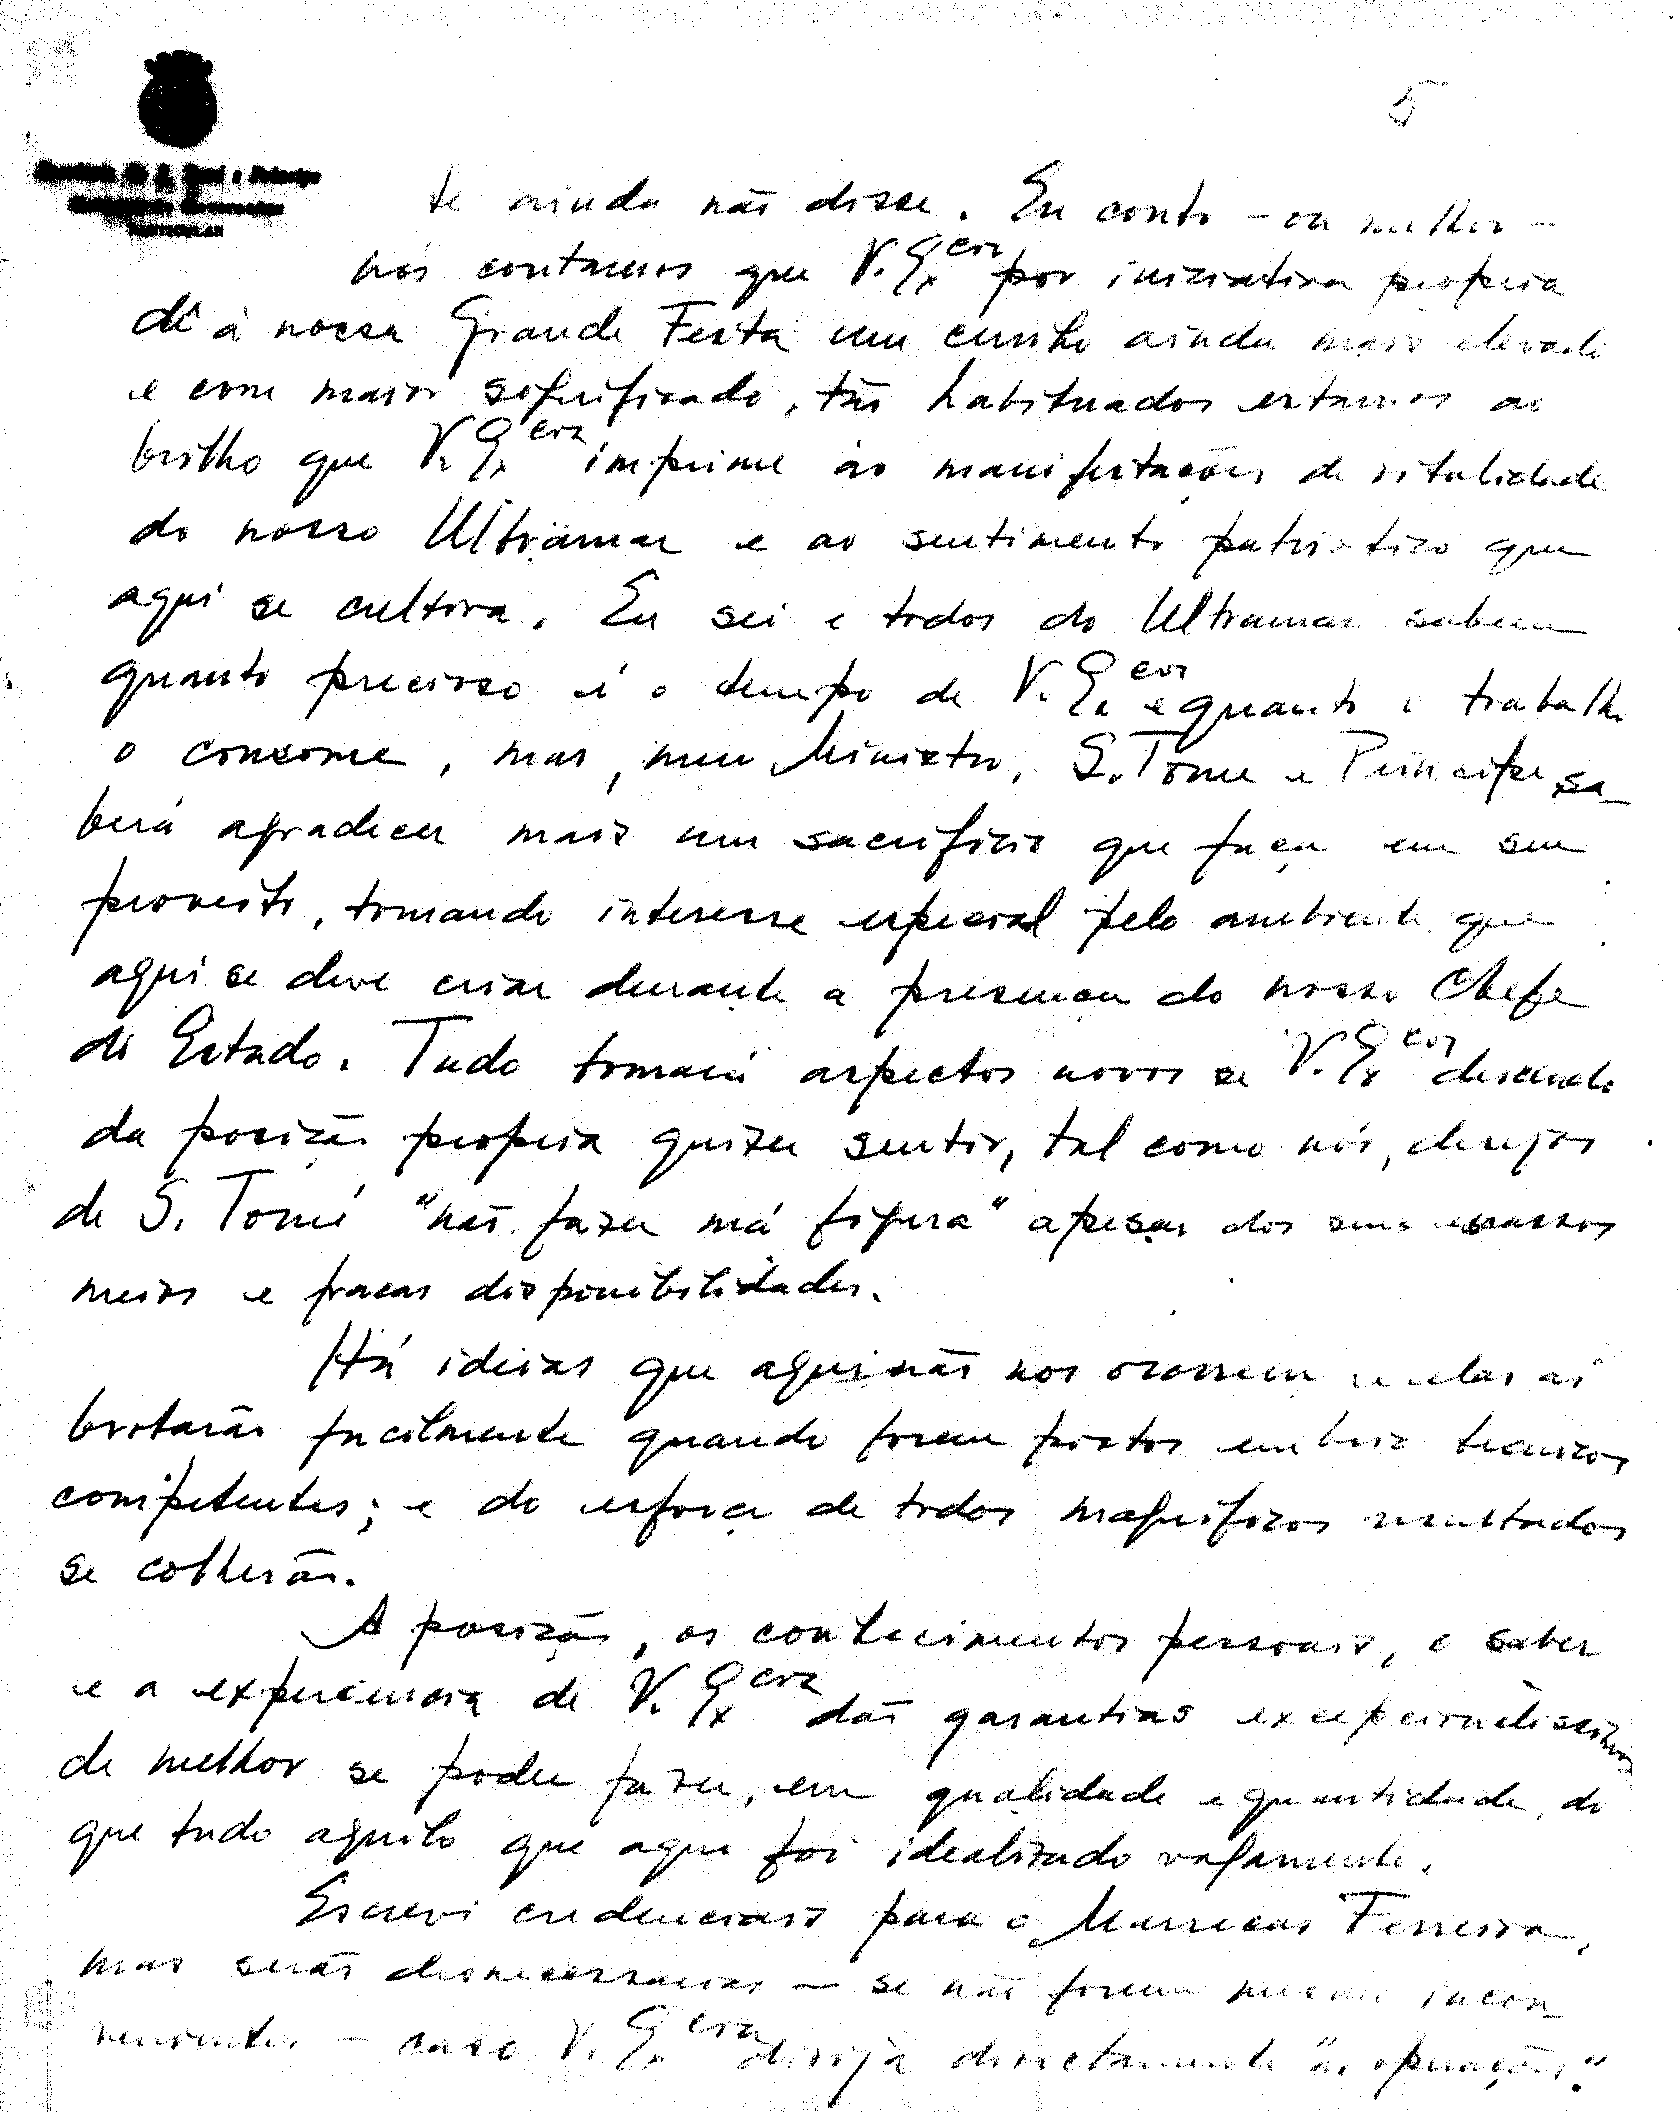 5
te ainda não disse. Eu conto – ou melhor –
nós contamos que V. Ex.cia por iniciativa propria
dê á nossa Grande Festa um cunho ainda mais elevado
e com maior significado, tão habituados estamos ao
brilho que V. Ex.cia imprime ás manifestações de vitalidade
do nosso Ultramar e ao sentimento patriotico que
aqui se cultiva. Eu sei e todos do Ultramar sabem
quanto precioso é o tempo de V. Ex.cia e quanto o trabalho
o consome, mas, meu Ministro, S. Tomé e Principe sa-
berá agradecer mais um sacrificio que faça em seu
proveito, tomando interesse especial pelo ambiente que
aqui se deve criar durante a presença do nosso Chefe
do Estado. Tudo tomará aspectos novos se V. Ex.cia descendo
da posição propria quizer sentir, tal como nós, desejos
de S. Tomé "não fazer má figura" apesar dos seus escassos
meios e fracas disponibilidades.
Há ideias que aqui não nos ocorrem e elas aí
brotarão facilmente quando forem postos em brio tecnicos
competentes; e do esforço de todos magnificos resultados
se colherão.
A posição, os conhecimentos pessoais, o saber
e a experiencia de V. Ex.cia dão garantias excepcionalissimas
de melhor se poder fazer, em qualidade e quantidade, do
que tudo aquilo que aqui foi idealizado vagamente.
Escrevi credenciais para o Marrecas Ferreira,
mas serão desnecessarias – se não forem mesmo incon-
venientes – caso V. Ex.cia dirija directamente "as operações".